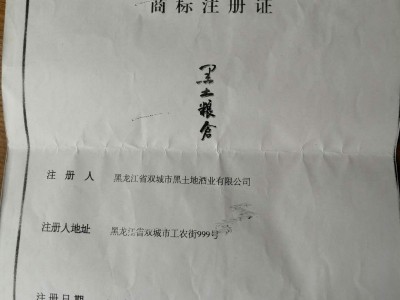 商标注册证
黑土粮仓
注册人 黑龙江省双城市黑土地酒业有限公司
注册人地址 黑龙江省双城市工农街999号
注册日期